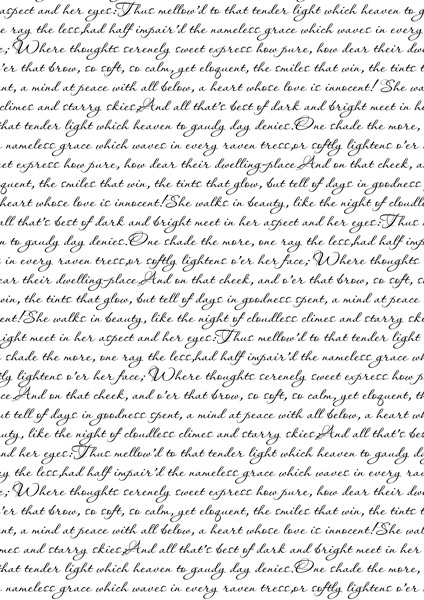 aspect and her eyes:Thus mellow'd to that tender light which heaven to g
e ray the less,had half impair'd the nameless grace which waves in every
e; Where thoughts serenely sweet express how pure, how dear their dwe
o'er that brow, so soft, so calm,yet eloquent, the smiles that win, the tints t
nt, a mind at peace with all below, a heart whose love is innocent! She wa
climes and starry skies,And all that's best of dark and bright meet in he
that tender light which heaven to gaudy day denies.One shade the more,
nameless grace which waves in every raven tress,or softly lightens o'er h
eet express how pure, how dear their dwelling-place.And on that cheek, a
quent, the smiles that win, the tints that glow, but tell of days in goodness
heart whose love is innocent!She walks in beauty, like the night of cloudle
all that's best of dark and bright meet in her aspect and her eyes:Thus
n to gaudy day denies.One shade the more, one ray the less,had half imp
in every raven tress,or softly lightens o'er her face; Where thoughts
ear their dwelling-place.And on that cheek, and o'er that brow, so soft, s
win, the tints that glow, but tell of days in goodness spent, a mind at peace
ent!She walks in beauty, like the night of cloudless climes and starry ski
ight meet in her aspect and her eyes:Thus mellow'd to that tender light
shade the more, one ray the less,had half impair'd the nameless grace wh
tly lightens o'er her face; Where thoughts serenely sweet express how p
ce.And on that cheek, and o'er that brow, so soft, so calm, yet eloquent, th
ut tell of days in goodness spent, a mind at peace with all below, a heart wh
uty, like the night of cloudless climes and starry skies,And all that's best
nd her eyes:Thus mellow'd to that tender light which heaven to gaudy da
y the less,had half impair'd the nameless grace which waves in every ra
e; Where thoughts serenely sweet express how pure, how dear their dwe
o'er that brow, so soft, so calm,yet eloquent, the smiles that win, the tints
nt, a mind at peace with all below, a heart whose love is innocent!She wal
mes and starry skies,And all that's best of dark and bright meet in her
that tender light which heaven to gaudy day denies.One shade the more,
nameless grace which waves in every raven tress,or softly lightens o'er